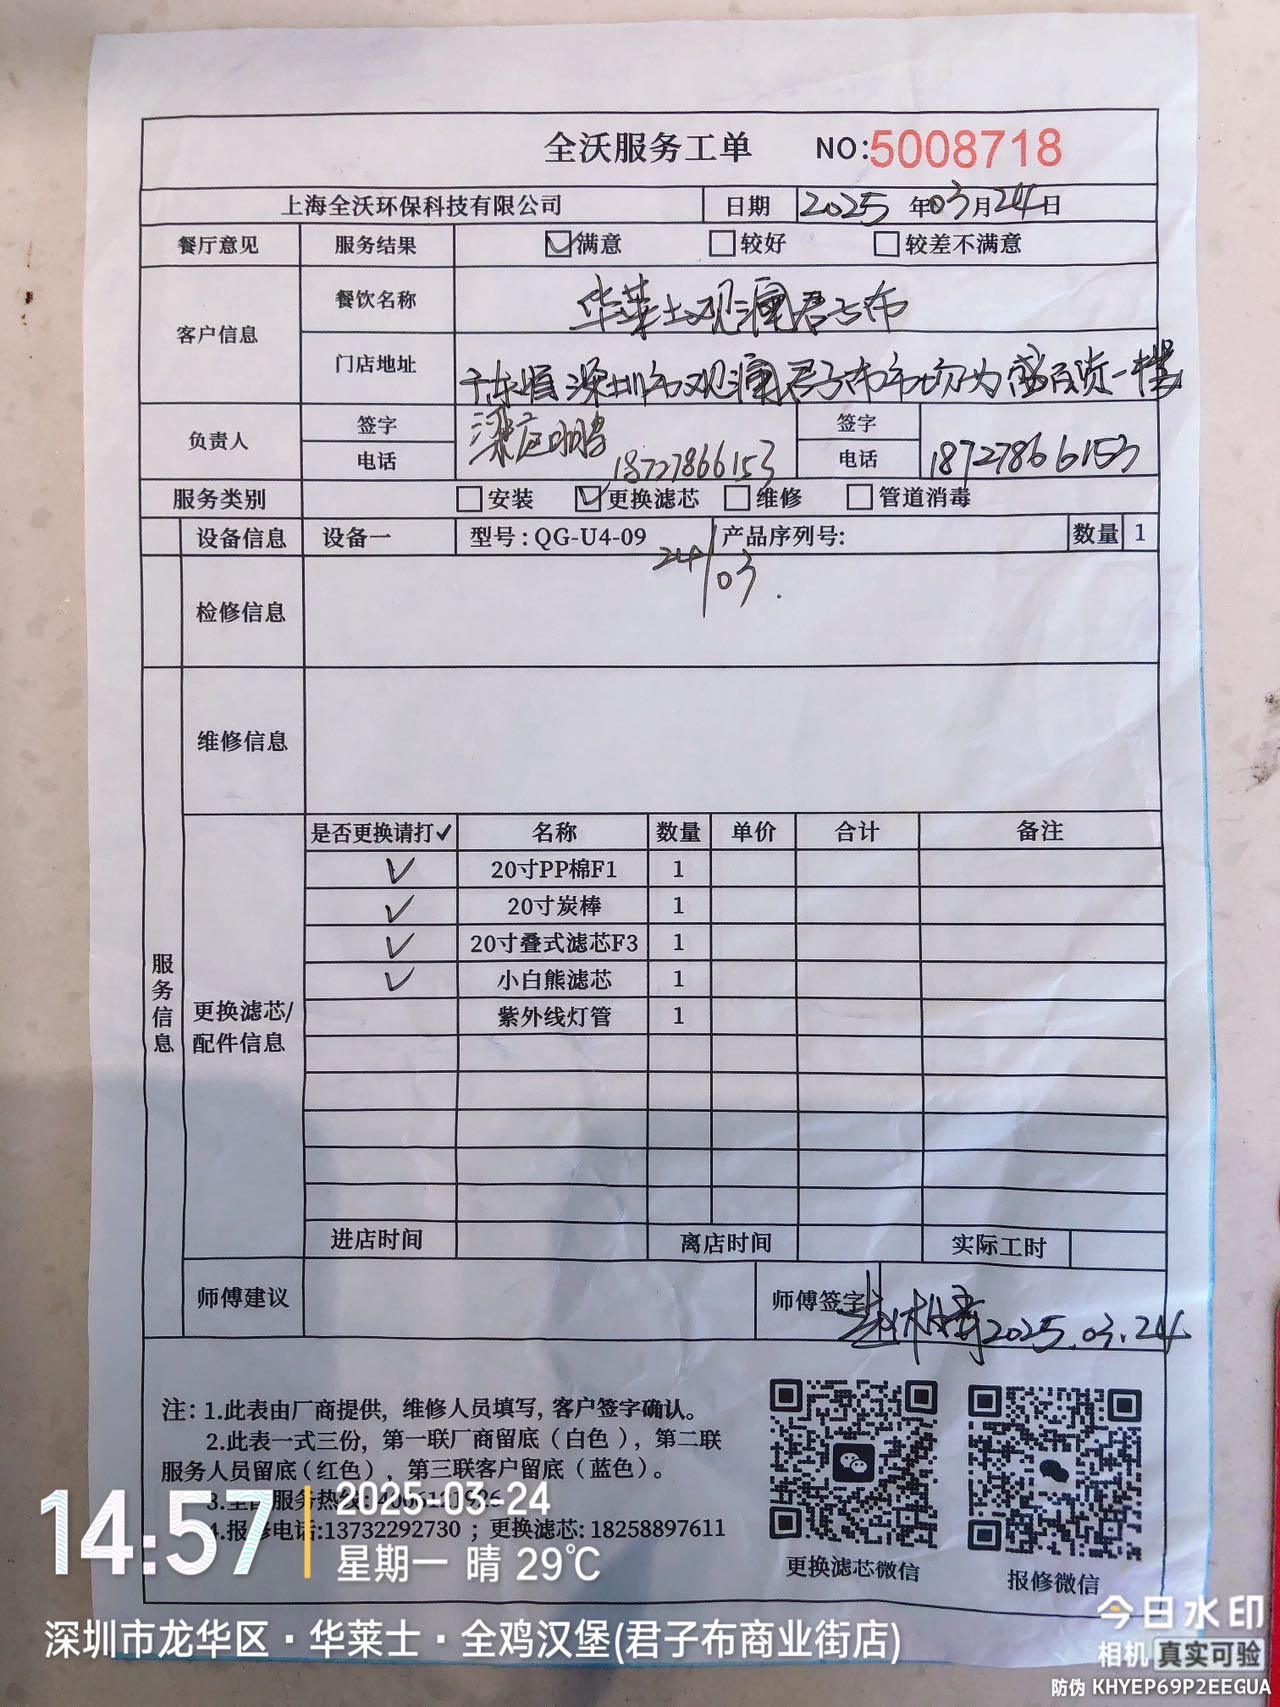 全沃服务工单 NO:5008718
上海全沃环保科技有限公司 日期 2025年03月24日
餐厅意见 服务结果 满意 较好 较差不满意
客户信息 餐饮名称 华莱士观澜君子布
门店地址 深圳市观澜君子布市场为盛百货一楼
负责人 签字 签字
电话 18727866153 电话 18727866153
服务类别 安装 更换滤芯 维修 管道消毒
设备信息 设备一 型号:QG-U4-09 产品序列号: 数量 1
24/03.
检修信息
维修信息
服务信息
更换滤芯/配件信息
是否更换请打✓ 名称 数量 单价 合计 备注
✓ 20寸PP棉F1 1
✓ 20寸炭棒 1
✓ 20寸叠式滤芯F3 1
✓ 小白熊滤芯 1
紫外线灯管 1
进店时间 离店时间 实际工时
师傅建议 师傅签字 2025.03.24
注:1.此表由厂商提供,维修人员填写,客户签字确认。
2.此表一式三份,第一联厂商留底(白色),第二联
服务人员留底(红色),第三联客户留底(蓝色)。
3.全国服务热线:
4.报修电话:13732292730;更换滤芯:18258897611
更换滤芯微信 报修微信
14:57 2025-03-24
星期一 晴 29℃
深圳市龙华区·华莱士·全鸡汉堡(君子布商业街店)
今日水印
相机 真实可验
防伪 KHYEP69P2EEGUA